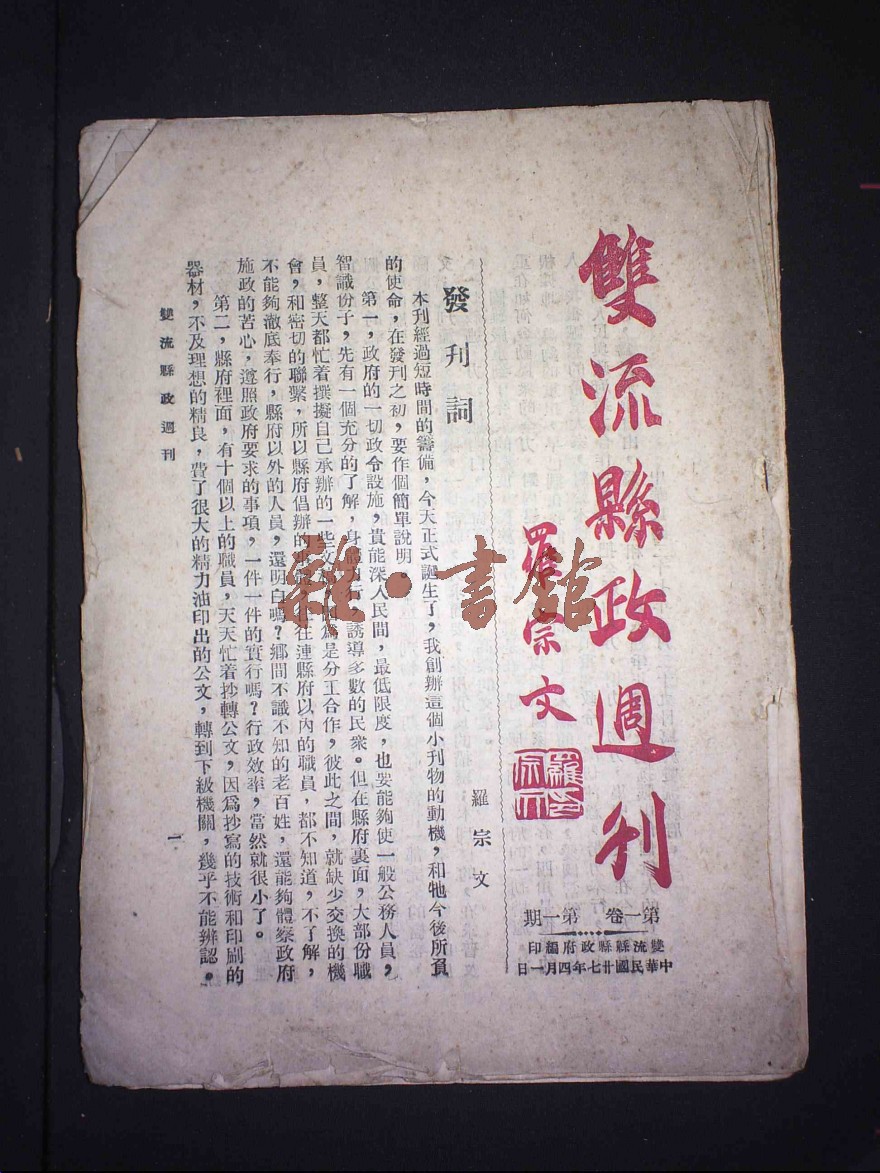 雙流縣政週刊
羅宗文
羅宗文印
第一卷　第一期
雙流縣縣政府編印
中華民國廿七年四月一日
發刊詞
羅宗文
本刊經過短時間的籌備，今天正式誕生了，我創辦這個小刊物的動機，和牠今後所負
的使命，在發刊之初，要作個簡單說明。
第一，政府的一切政令設施，貴能深入民間，最低限度，也要能夠使一般公務人員，
智識份子，先有一個充分的了解，身誘導多數的民衆。但在縣府裏面，大部份職
員，整天都忙着撰擬自己承辦的一些文爲是分工合作，彼此之間，就缺少交換的機
會，和密切的聯繫，所以縣府倡辦的往連縣府以內的職員，都不知道，不了解，
不能夠澈底奉行，縣府以外的人員，還明白嗎？鄉間不識不知的老百姓，還能夠體察政府
施政的苦心，遵照政府要求的事項，一件一件的實行嗎？行政效率，當然就很小了。
第二，縣府裡面，有十個以上的職員，天天忙着抄轉公文，因爲抄寫的技術和印刷的
器材，不及理想的精良，費了很大的精力油印出的公文，轉到下級機關，幾乎不能辨認。
雙流縣政週刊
一
雜·書館